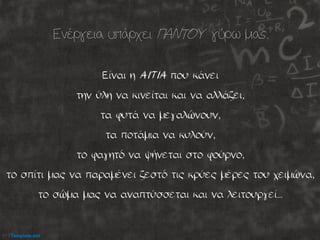 Ενέργεια υπάρχει ΠΑΝΤΟΥ γύρω μας.
Είναι η ΑΙΤΙΑ που κάνει
την ύλη να κινείται και να αλλάζει,
τα φυτά να μεγαλώνουν,
τα ποτάμια να κυλούν,
το φαγητό να ψήνεται στο φούρνο,
το σπίτι μας να παραμένει ζεστό τις κρύες μέρες του χειμώνα,
το σώμα μας να αναπτύσσεται και να λειτουργεί...